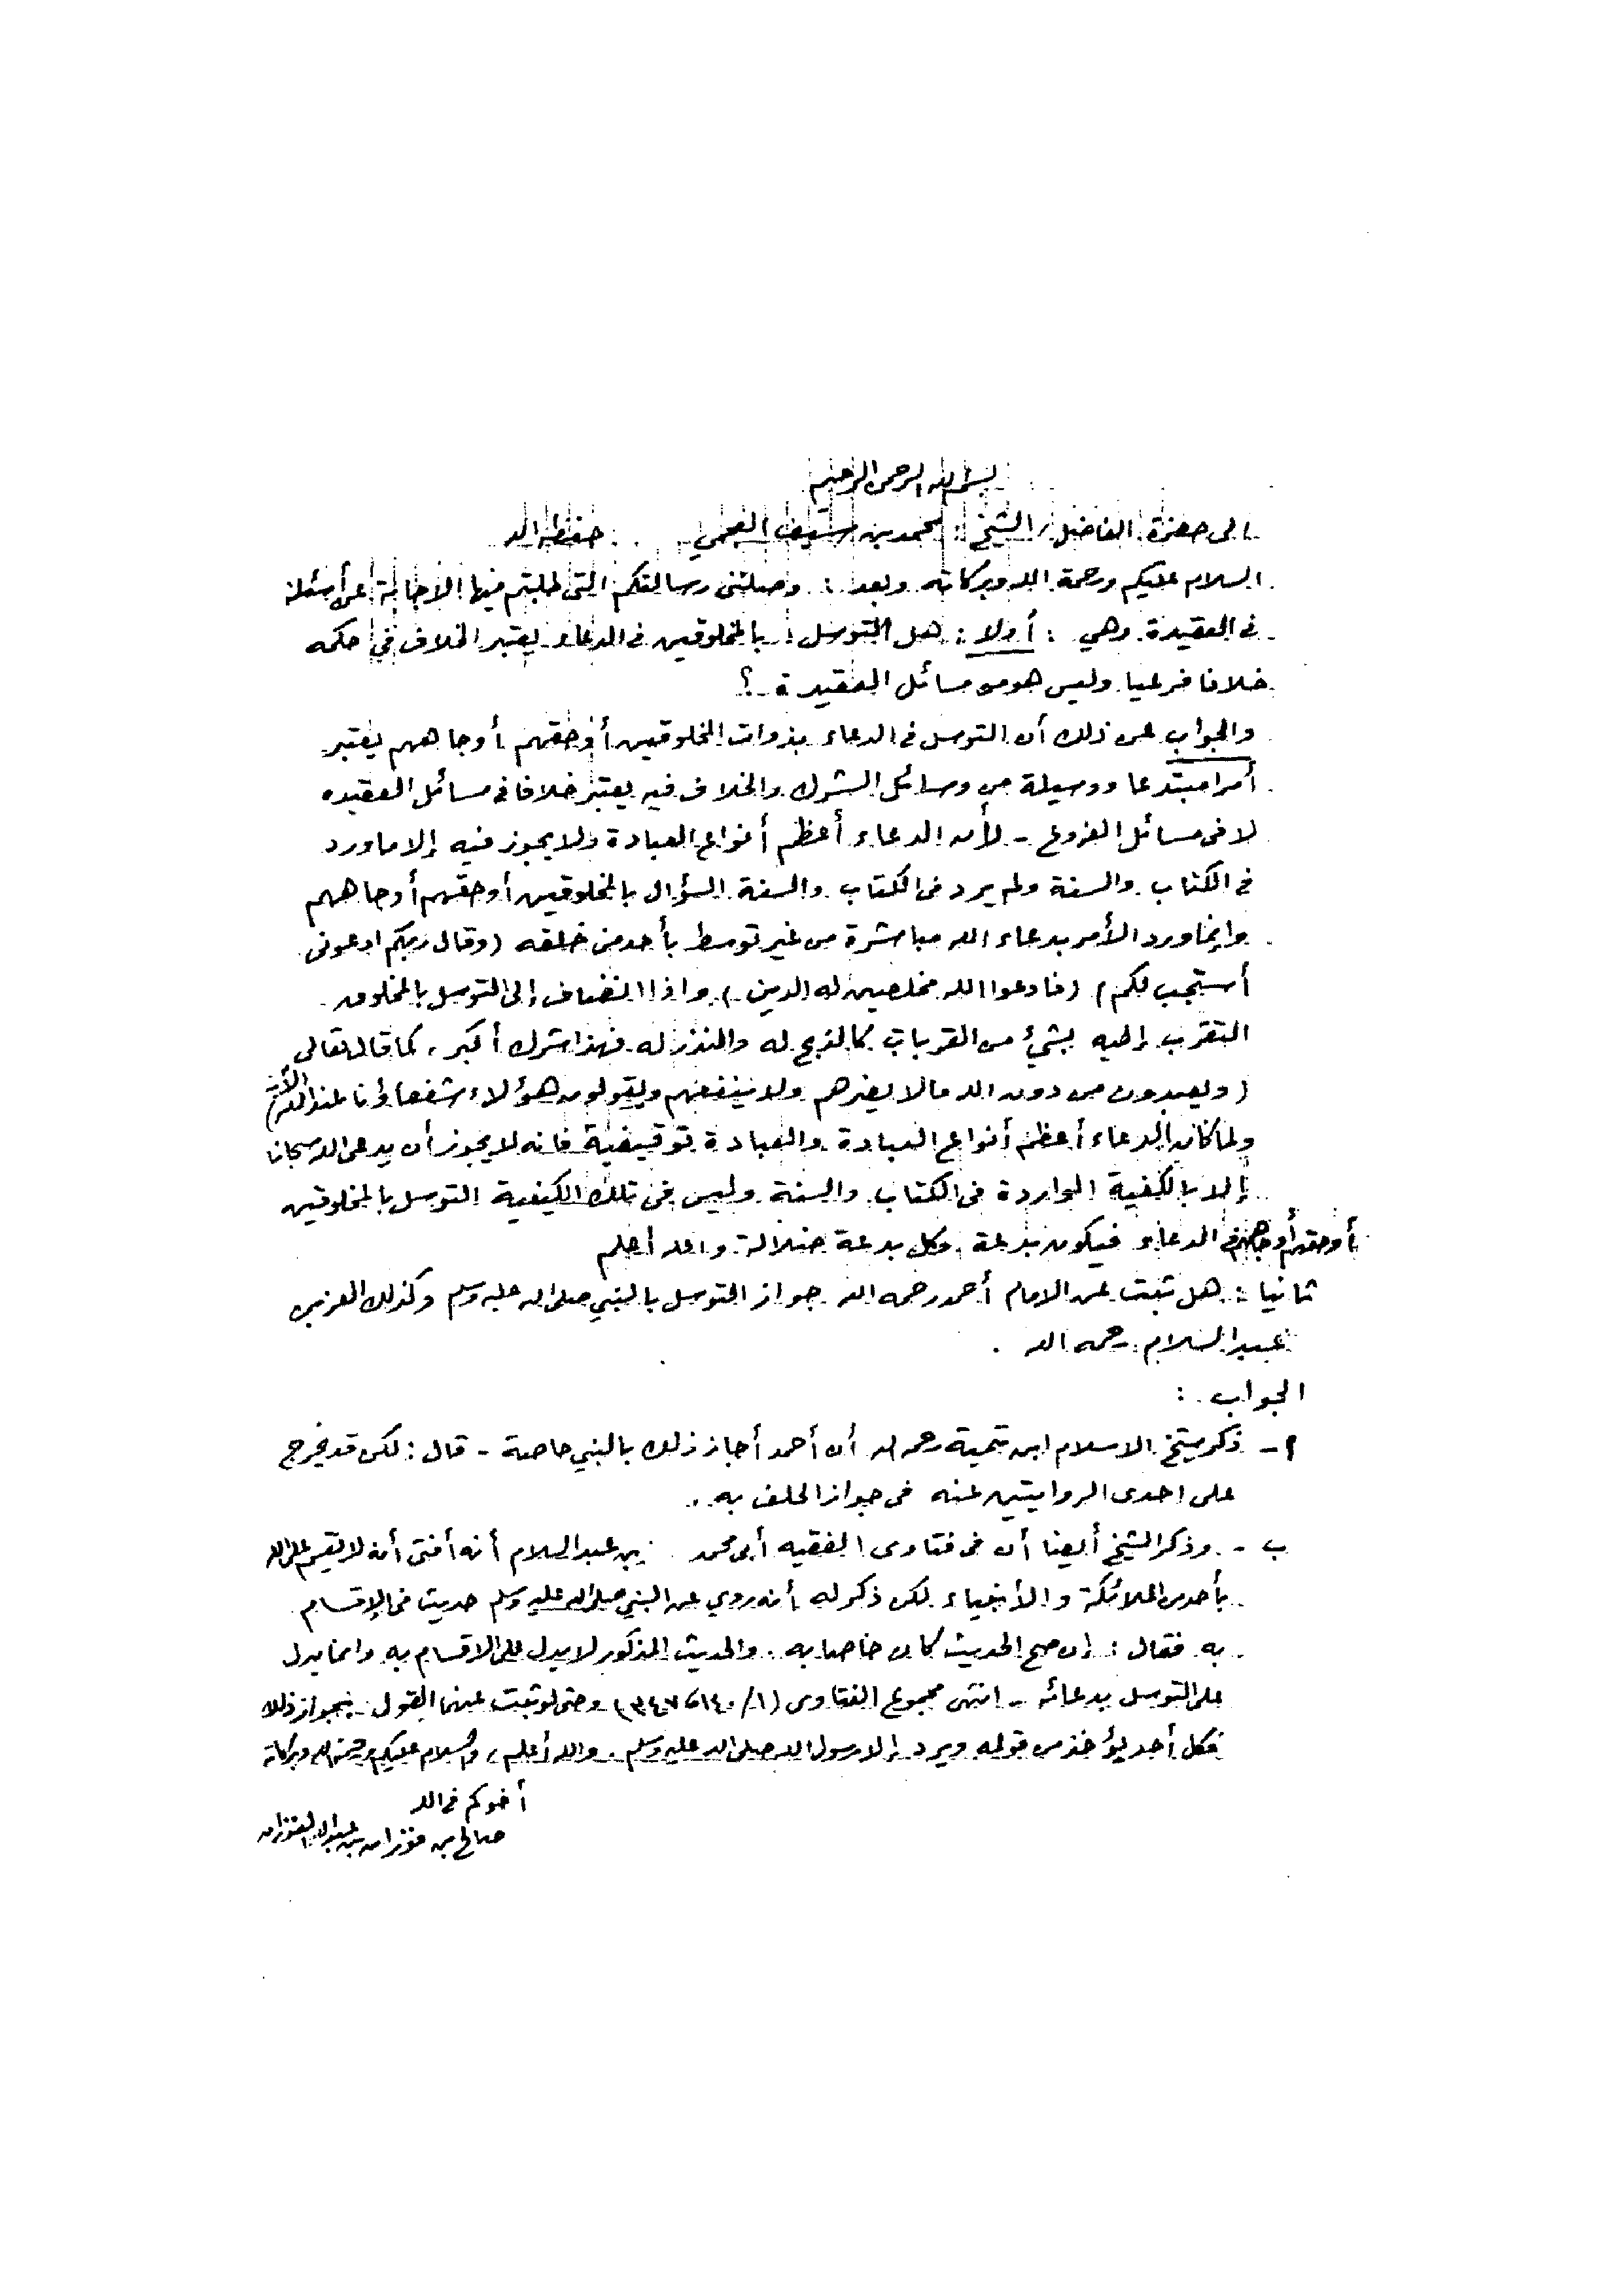 بسم الله الرحمن الرحيم
الى حضرة الفاضل / الشيخ : محمد بن سيف العجمي حفظه الله
السلام عليكم ورحمة الله وبركاته وبعد : وصلتني رسالتكم التي طلبتم فيها الاجابة عن أسئلة
في العقيدة وهي : أولا : هل التوسل بالمخلوقين في الدعاء يعتبر الخلاف في حكمه
خلافا فرعيا وليس هو من مسائل العقيدة ؟
والجواب عن ذلك أن التوسل في الدعاء بذوات المخلوقين أو حقهم أو جاههم يعتبر
أمرا مبتدعا ووسيلة من وسائل الشرك والخلاف فيه يعتبر خلافا في مسائل العقيده
لا في مسائل الفروع - لأن الدعاء أعظم أنواع العبادة ولا يجوز فيه إلا ما ورد
في الكتاب والسنة ولم يرد في الكتاب والسنة السؤال بالمخلوقين أو حقهم أو جاههم
وإنما ورد الأمر بدعاء الله مباشرة من غير توسط بأحد من خلقه (وقال ربكم ادعوني
أستجب لكم) (فادعوا الله مخلصين له الدين) واذا انضاف إلى التوسل بالمخلوق
التقرب إليه بشيء من القربات كالذبح له والنذر له فهذا شرك أكبر ، كما قال تعالى
(ويعبدون من دون الله ما لا يضرهم ولا ينفعهم ويقولون هؤلاء شفعاؤنا عند الله) الآية
ولما كان الدعاء أعظم أنواع العبادة والعبادة توقيفية فانه لا يجوز أن يدعى الله سبحانه
إلا بالكيفية الواردة في الكتاب والسنة وليس في تلك الكيفية التوسل بالمخلوقين
أو حقهم أو جاههم في الدعاء فيكون بدعة وكل بدعة ضلالة والله أعلم
ثانيا : هل ثبت عن الامام أحمد رحمه الله جواز التوسل بالنبي صلى الله عليه وسلم وكذلك العز بن
عبد السلام رحمه الله .
الجواب :
أ - ذكر شيخ الاسلام ابن تيمية رحمه الله أن أحمد أجاز ذلك بالنبي خاصة - قال : لكن قد يخرج
على احدى الروايتين عنه في جواز الحلف به .
ب - وذكر الشيخ أيضا أن في فتاوى الفقيه أبي محمد بن عبد السلام أنه أفتى أنه لا يقسم على الله
بأحد من الملائكة والأنبياء لكن ذكر له أنه روي عن النبي صلى الله عليه وسلم حديث في الإقسام
به فقال : إن صح الحديث كان خاصا به . والحديث المذكور لا يدل على الاقسام به وانما يدل
على التوسل بدعائه - انتهى مجموع الفتاوى (١/١٤٠، ٣٤٧) وحتى لو ثبت عنهما القول بجواز ذلك
فكل أحد يؤخذ من قوله ويرد إلا رسول الله صلى الله عليه وسلم . والله أعلم ، والسلام عليكم ورحمة الله وبركاته
أخوكم في الله
صالح بن فوزان بن عبد الله الفوزان